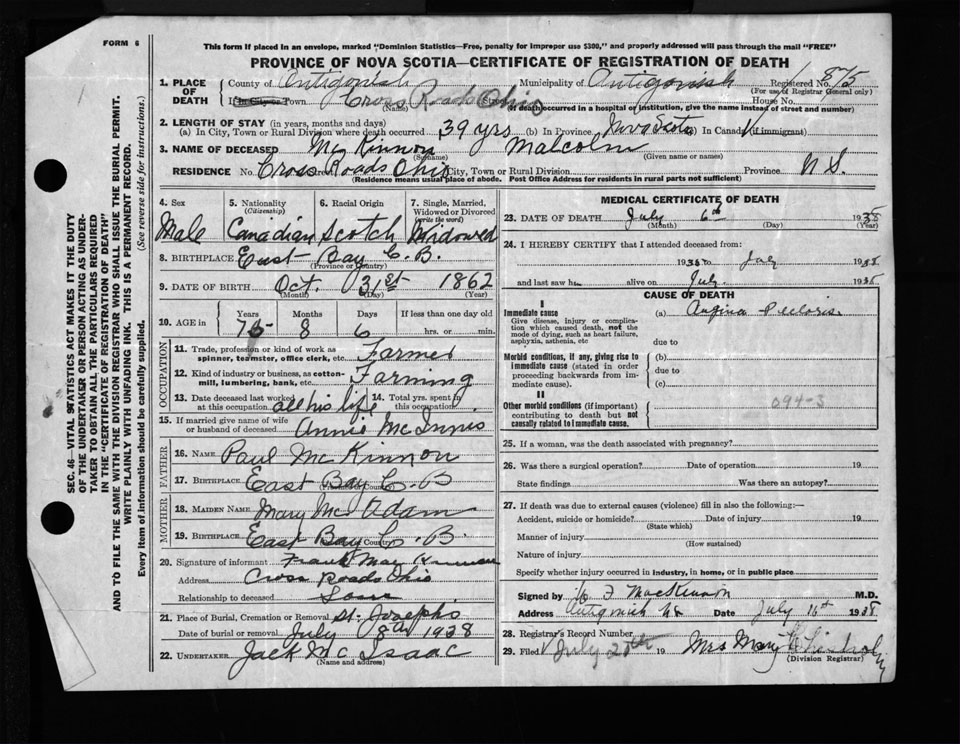 FORM 6
This form if placed in an envelope, marked "Dominion Statistics—Free, penalty for improper use $300," and properly addressed will pass through the mail "FREE"
PROVINCE OF NOVA SCOTIA—CERTIFICATE OF REGISTRATION OF DEATH
1. PLACE OF DEATH
County of Antigonish Municipality of Antigonish Registered No. 875
(For use of Registrar General only)
If in City or Town Cross Roads Ohio Street House No.
(If death occurred in a hospital or institution, give name instead of street and number)
2. LENGTH OF STAY (in years, months and days)
(a) In City, Town or Rural Division where death occurred 39 yrs (b) In Province Nova Scotia (c) In Canada (if immigrant)
3. NAME OF DECEASED Mc Kinnon Malcolm
(Surname) (Given name or names)
RESIDENCE No. Cross Roads Ohio City, Town or Rural District Province N S.
(Residence means usual place of abode. Post Office Address for residents in rural parts not sufficient)
4. Sex 5. Nationality (Citizenship) 6. Racial Origin 7. Single, Married, Widowed or Divorced (write the word)
Male Canadian Scotch Widowed
8. BIRTHPLACE East Bay C. B.
(Province or Country)
9. DATE OF BIRTH Oct. 31st 1862
(Month) (Day) (Year)
10. AGE in Years Months Days If less than one day old
75 8 6 hrs. or min.
OCCUPATION
11. Trade, profession or kind of work as spinner, teamster, office clerk, etc. Farmer
12. Kind of industry or business, as cotton-mill, lumbering, bank, etc. Farming
13. Date deceased last worked at this occupation all his life 14. Total yrs. spent in this occupation
15. If married give name of wife or husband of deceased Annie McInnis
FATHER
16. NAME Paul Mc Kinnon
17. BIRTHPLACE East Bay C. B
MOTHER
18. MAIDEN NAME Mary Mc Adam
19. BIRTHPLACE East Bay C. B
20. Signature of informant Frank
Address Cross Roads Ohio
Relationship to deceased Son
21. Place of Burial, Cremation or Removal St. Josephs
Date of burial or removal July 8th 1938
22. UNDERTAKER Jack Mc Isaac
(Name and address)
MEDICAL CERTIFICATE OF DEATH
23. DATE OF DEATH July 6th 1938
(Month) (Day) (Year)
24. I HEREBY CERTIFY that I attended deceased from:
to July 1938
and last saw h alive on July
CAUSE OF DEATH
I
Immediate cause (a) Angina Pectoris
Give disease, injury or complication which caused death, not the mode of dying, such as heart failure, asphyxia, asthenia, etc
due to
Morbid conditions, if any, giving rise to immediate cause (stated in order proceeding backwards from immediate cause).
(b)
due to
(c)
II
Other morbid conditions (if important) contributing to death but not causally related to immediate cause.
094-3
25. If a woman, was the death associated with pregnancy?
26. Was there a surgical operation? Date of operation 19
State findings Was there an autopsy?
27. If death was due to external causes (violence) fill in also the following:—
Accident, suicide or homicide? Date of injury 19
(State which)
Manner of injury
(How sustained)
Nature of injury
Specify whether injury occurred in industry, in home, or in public place
Signed by MacKinnon M.D.
Address Antigonish NS Date July 1938
28. Registrar's Record Number
29. Filed July 19 Mrs Mary
(Division Registrar)
SEC. 46—VITAL STATISTICS ACT MAKES IT THE DUTY
OF THE UNDERTAKER OR PERSON ACTING AS UNDER-
TAKER TO OBTAIN ALL THE PARTICULARS REQUIRED
IN THE "CERTIFICATE OF REGISTRATION OF DEATH"
AND TO FILE THE SAME WITH THE DIVISION REGISTRAR WHO SHALL ISSUE THE BURIAL PERMIT.
WRITE PLAINLY WITH UNFADING INK. THIS IS A PERMANENT RECORD.
Every item of information should be carefully supplied. (See reverse side for instructions.)